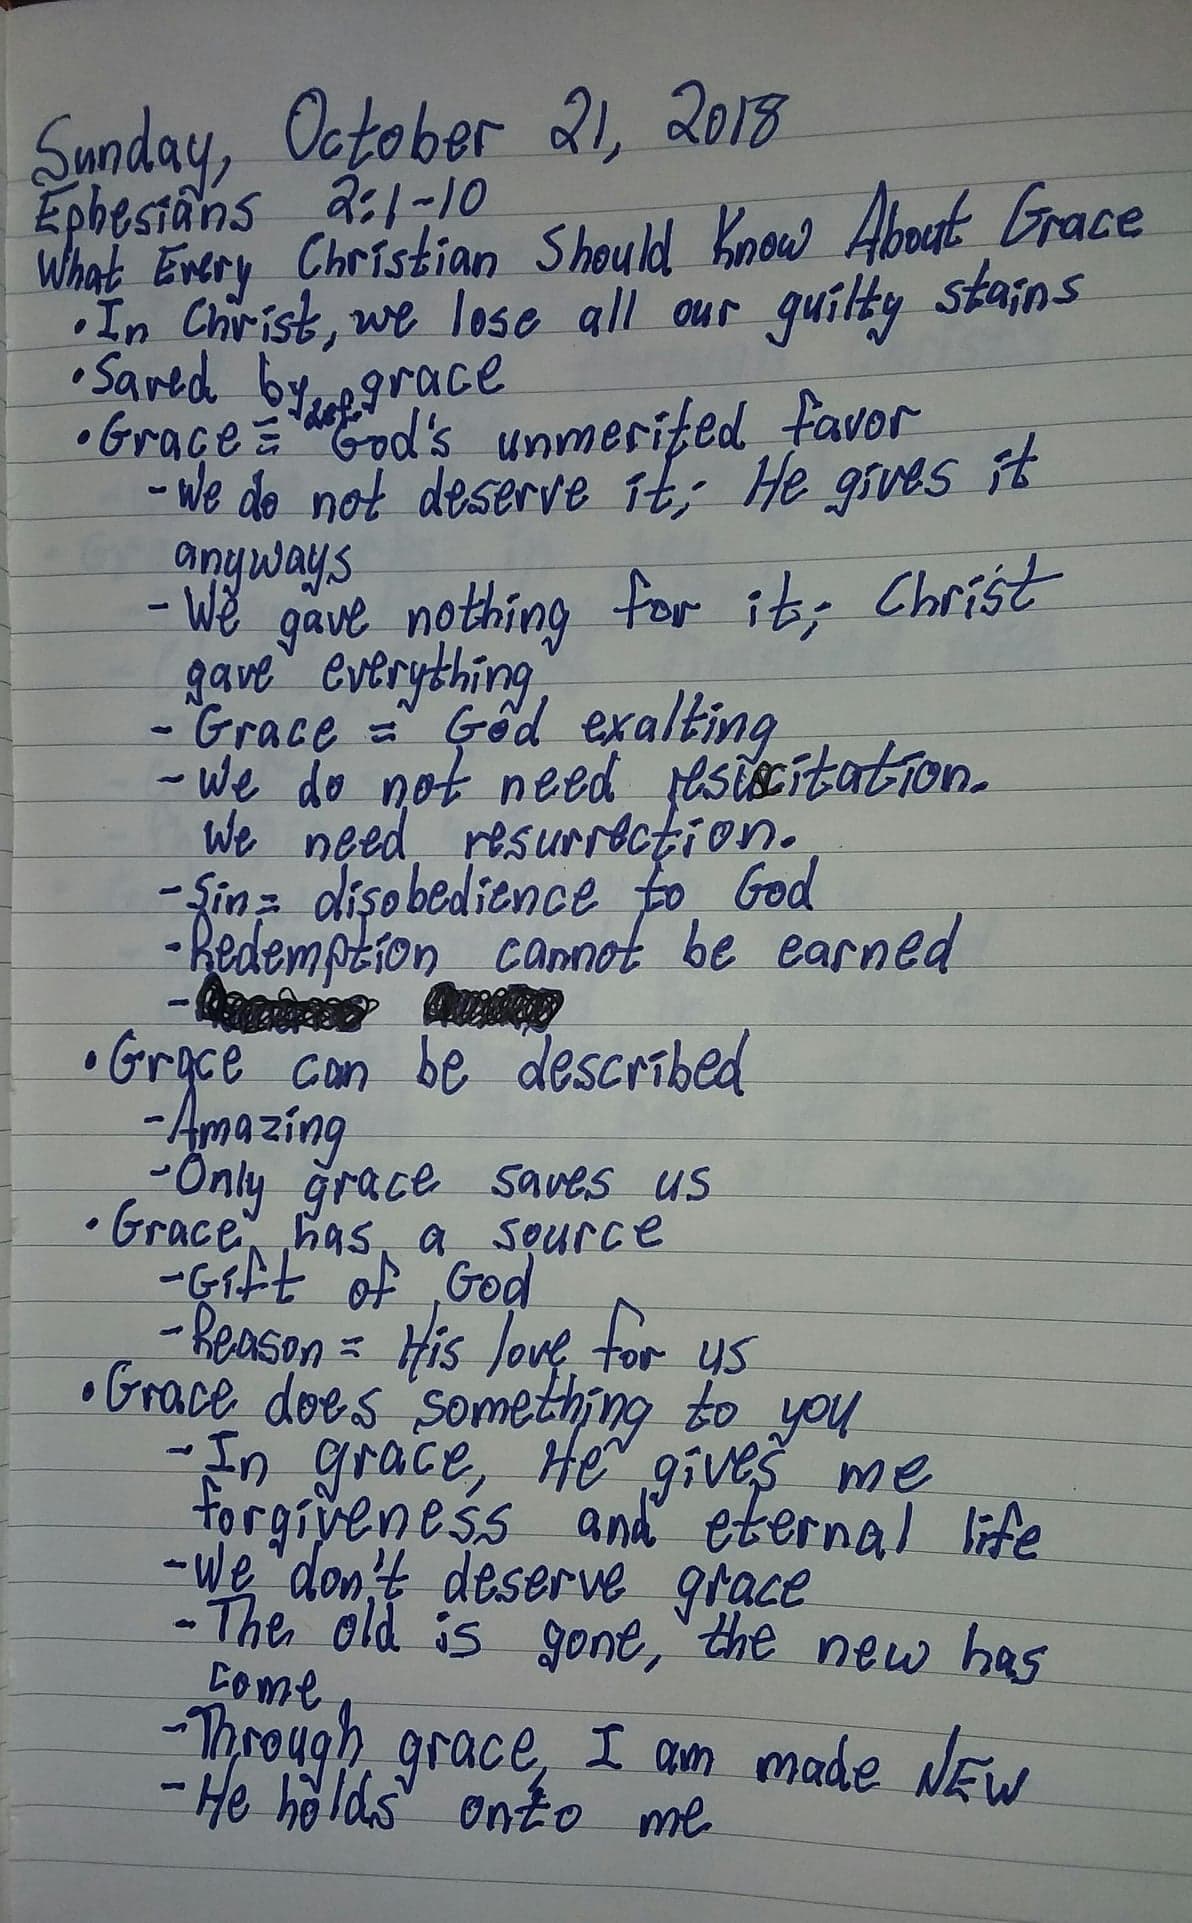 Sunday, October 21, 2018
Ephesians 2:1-10
What Every Christian Should Know About Grace
• In Christ, we lose all our guilty stains
• Saved by grace
• Grace = def. God's unmerited favor
- We do not deserve it; He gives it
anyways
- We gave nothing for it; Christ
gave everything
- Grace = God exalting
- We do not need resuscitation.
We need resurrection.
- Sin = disobedience to God
- Redemption cannot be earned
-
• Grace can be described
- Amazing
- Only grace saves us
• Grace has a source
- Gift of God
- Reason = His love for us
• Grace does something to you
- In grace, He gives me
forgiveness and eternal life
- We don't deserve grace
- The old is gone, the new has
come
- Through grace, I am made NEW
- He holds onto me